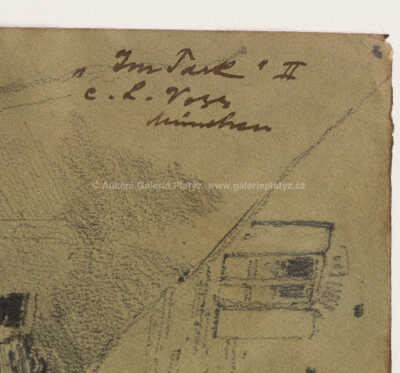 „Im Park“ II
C. L. Voss
München
© Aukční Galerie Platýz - www.galerieplatyz.cz